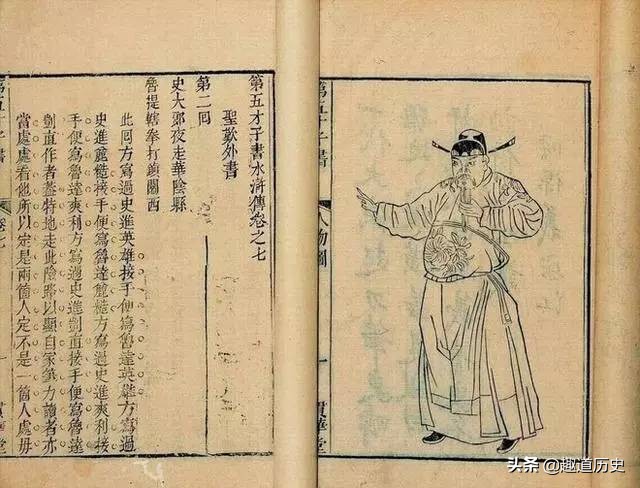 第五才子書
人物圖
一
貫華堂
第五才子書水滸傳卷之七
聖歎外書
第二囘
史大郎夜走華陰縣
魯提轄拳打鎮關西
此囘方寫過史進英雄接手便寫魯達英雄方寫過
史進麄糙接手便寫魯達麄糙方寫過史進爽利接
手便寫魯達爽利方寫過史進剴直接手便寫魯達
剴直作者葢特地走此險路以顯自家筆力讀者亦
當處處看他所以定是兩箇人定不是一箇人處毋
第五才子書
卷七
一
貫華堂
头条 @趣道历史